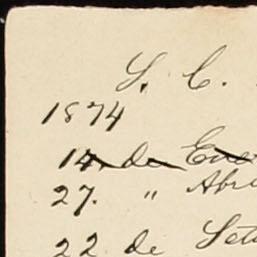 S. C.
1874
14 de Ene
27. " Abri
22 de Set